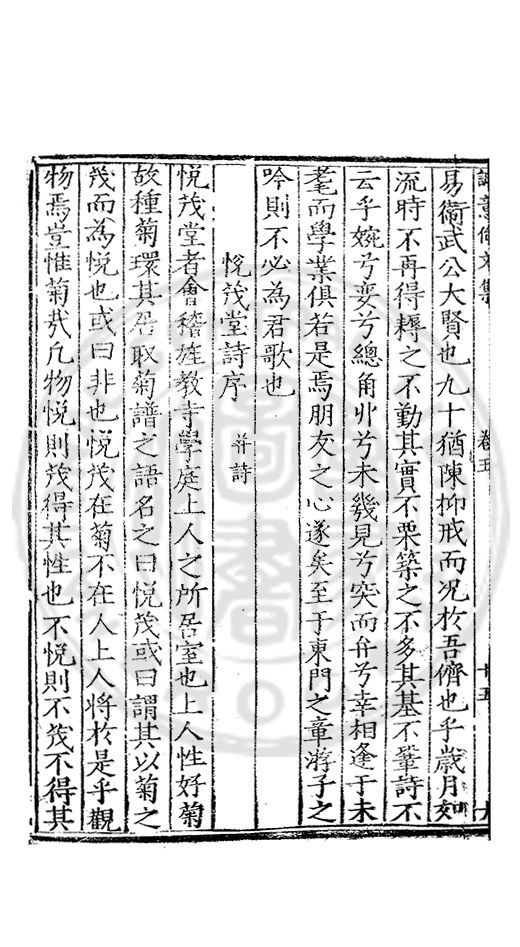 易衛武公大賢也九十猶陳抑戒而况於吾儕也乎歲月如
流時不再得耨之不勤其實不栗築之不多其基不鞏詩不
云乎婉兮孌兮總角丱兮未幾見兮突而弁兮幸相逢于未
耄而學業俱若是焉朋友之心遂矣至于東門之章游子之
吟則不必為君歌也
悅茂堂詩序 并詩
悅茂堂者會稽旌教寺學庭上人之所居室也上人性好菊
故種菊環其居取菊譜之語名之曰悅茂或曰謂其以菊之
茂而為悅也或曰非也悅茂在菊不在人上人將於是乎觀
物焉豈惟菊哉凡物悅則茂得其性也不悅則不茂不得其
卷五
十五